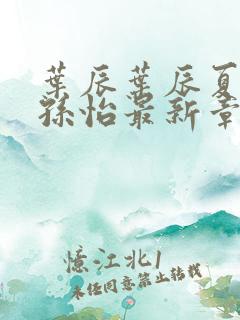 葉辰葉辰夏
孫怡最新章
憶江北1
未经同意禁止转载